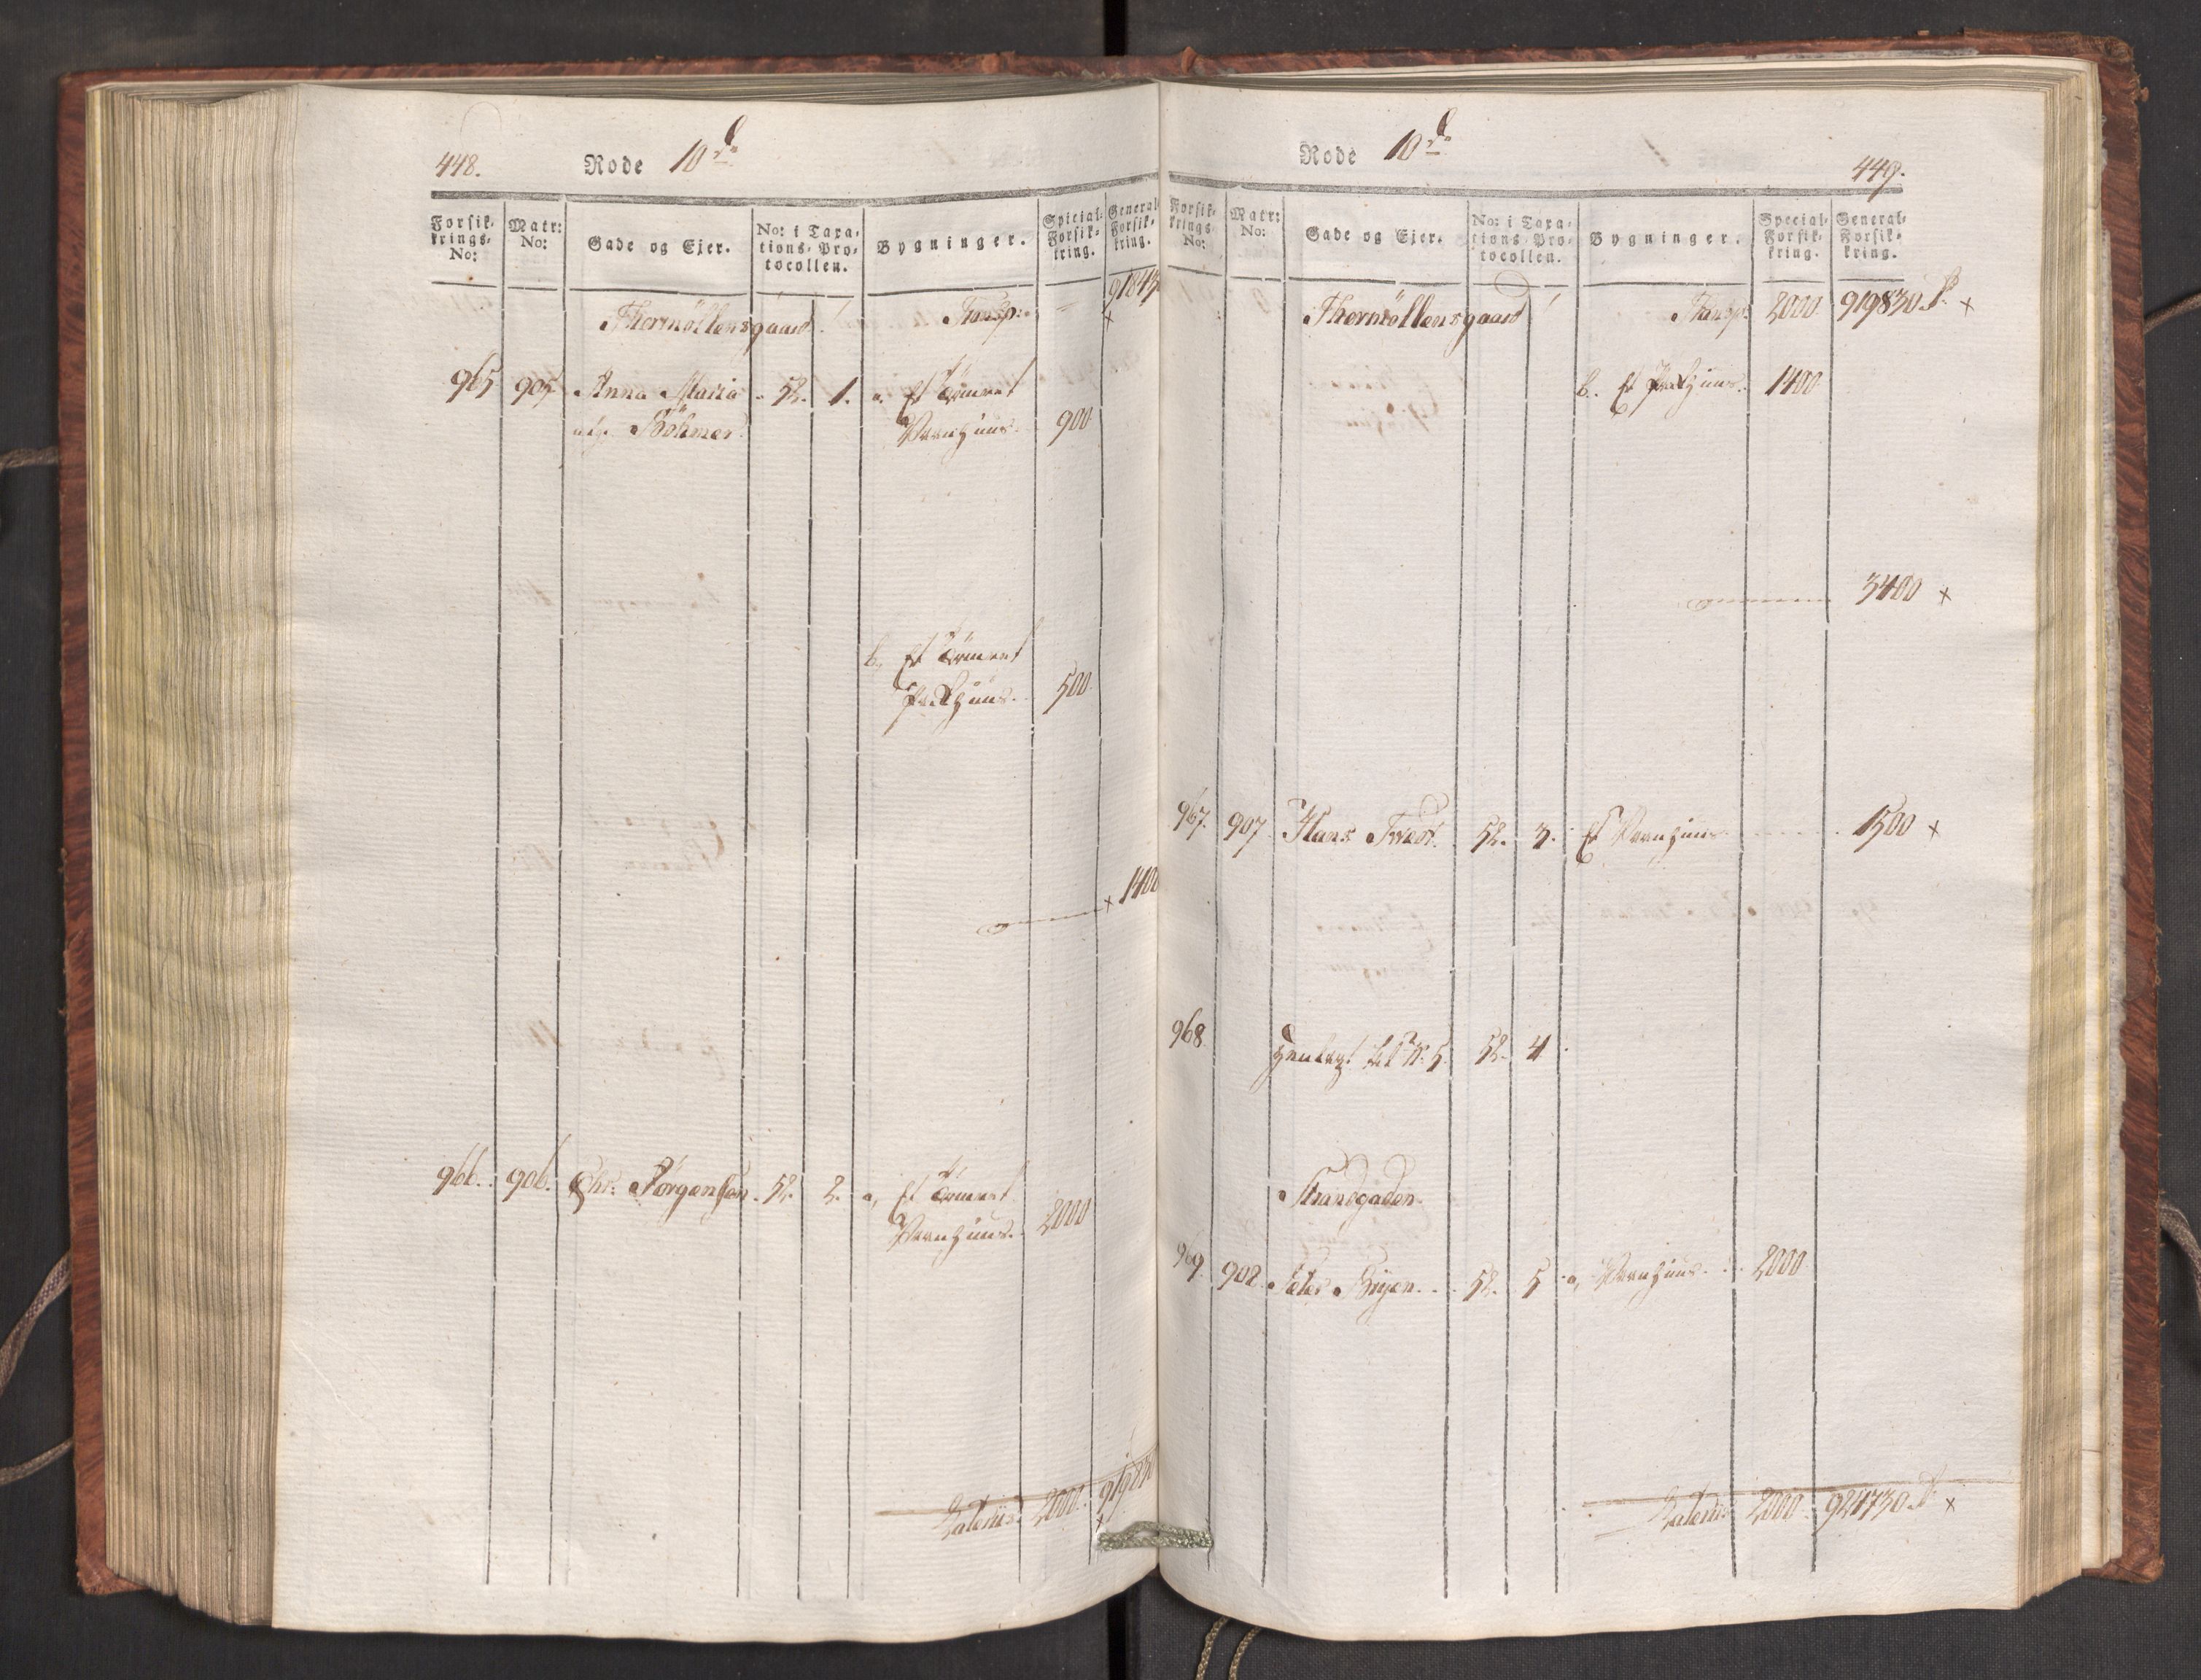 448.
Rode 10de
Forsik-
krings-
No:
Matr:
No:
Gade og Ejer.
No: i Taxa-
tions-Pro-
tocollen.
Bygninger.
Special-
Forsik-
kring.
General-
Forsik-
kring.
Thormöllensgaard
Transp:
965 905 Anna Maria 52. 1. a. Et Tömret
Böhmer Vaaghuus 900
b, Et Tömret
Pakhuus 500
1400
966. 906. Chr: Jörgensen 52. 2. a, Et Tömret
Vaanhuus 2000
Lateris 2000
Rode 10de
449.
Forsik-
krings-
No:
Matr:
No:
Gade og Ejer.
No: i Taxa-
tions-Pro-
tocollen.
Bygninger.
Special-
Forsik-
kring.
General-
Forsik-
kring.
Thormöllensgaard Transp: 2000 919830
b. Et Pakhuus 1400
3400 x
967. 907 Hans Tvedt 52. 3. Et Vaanhuus 1500 x
968
52. 4
Strandgaden
969. 908. Peter Bryen 52. 5 a, Vaanhuus 2000
Lateris 2000 924730 x